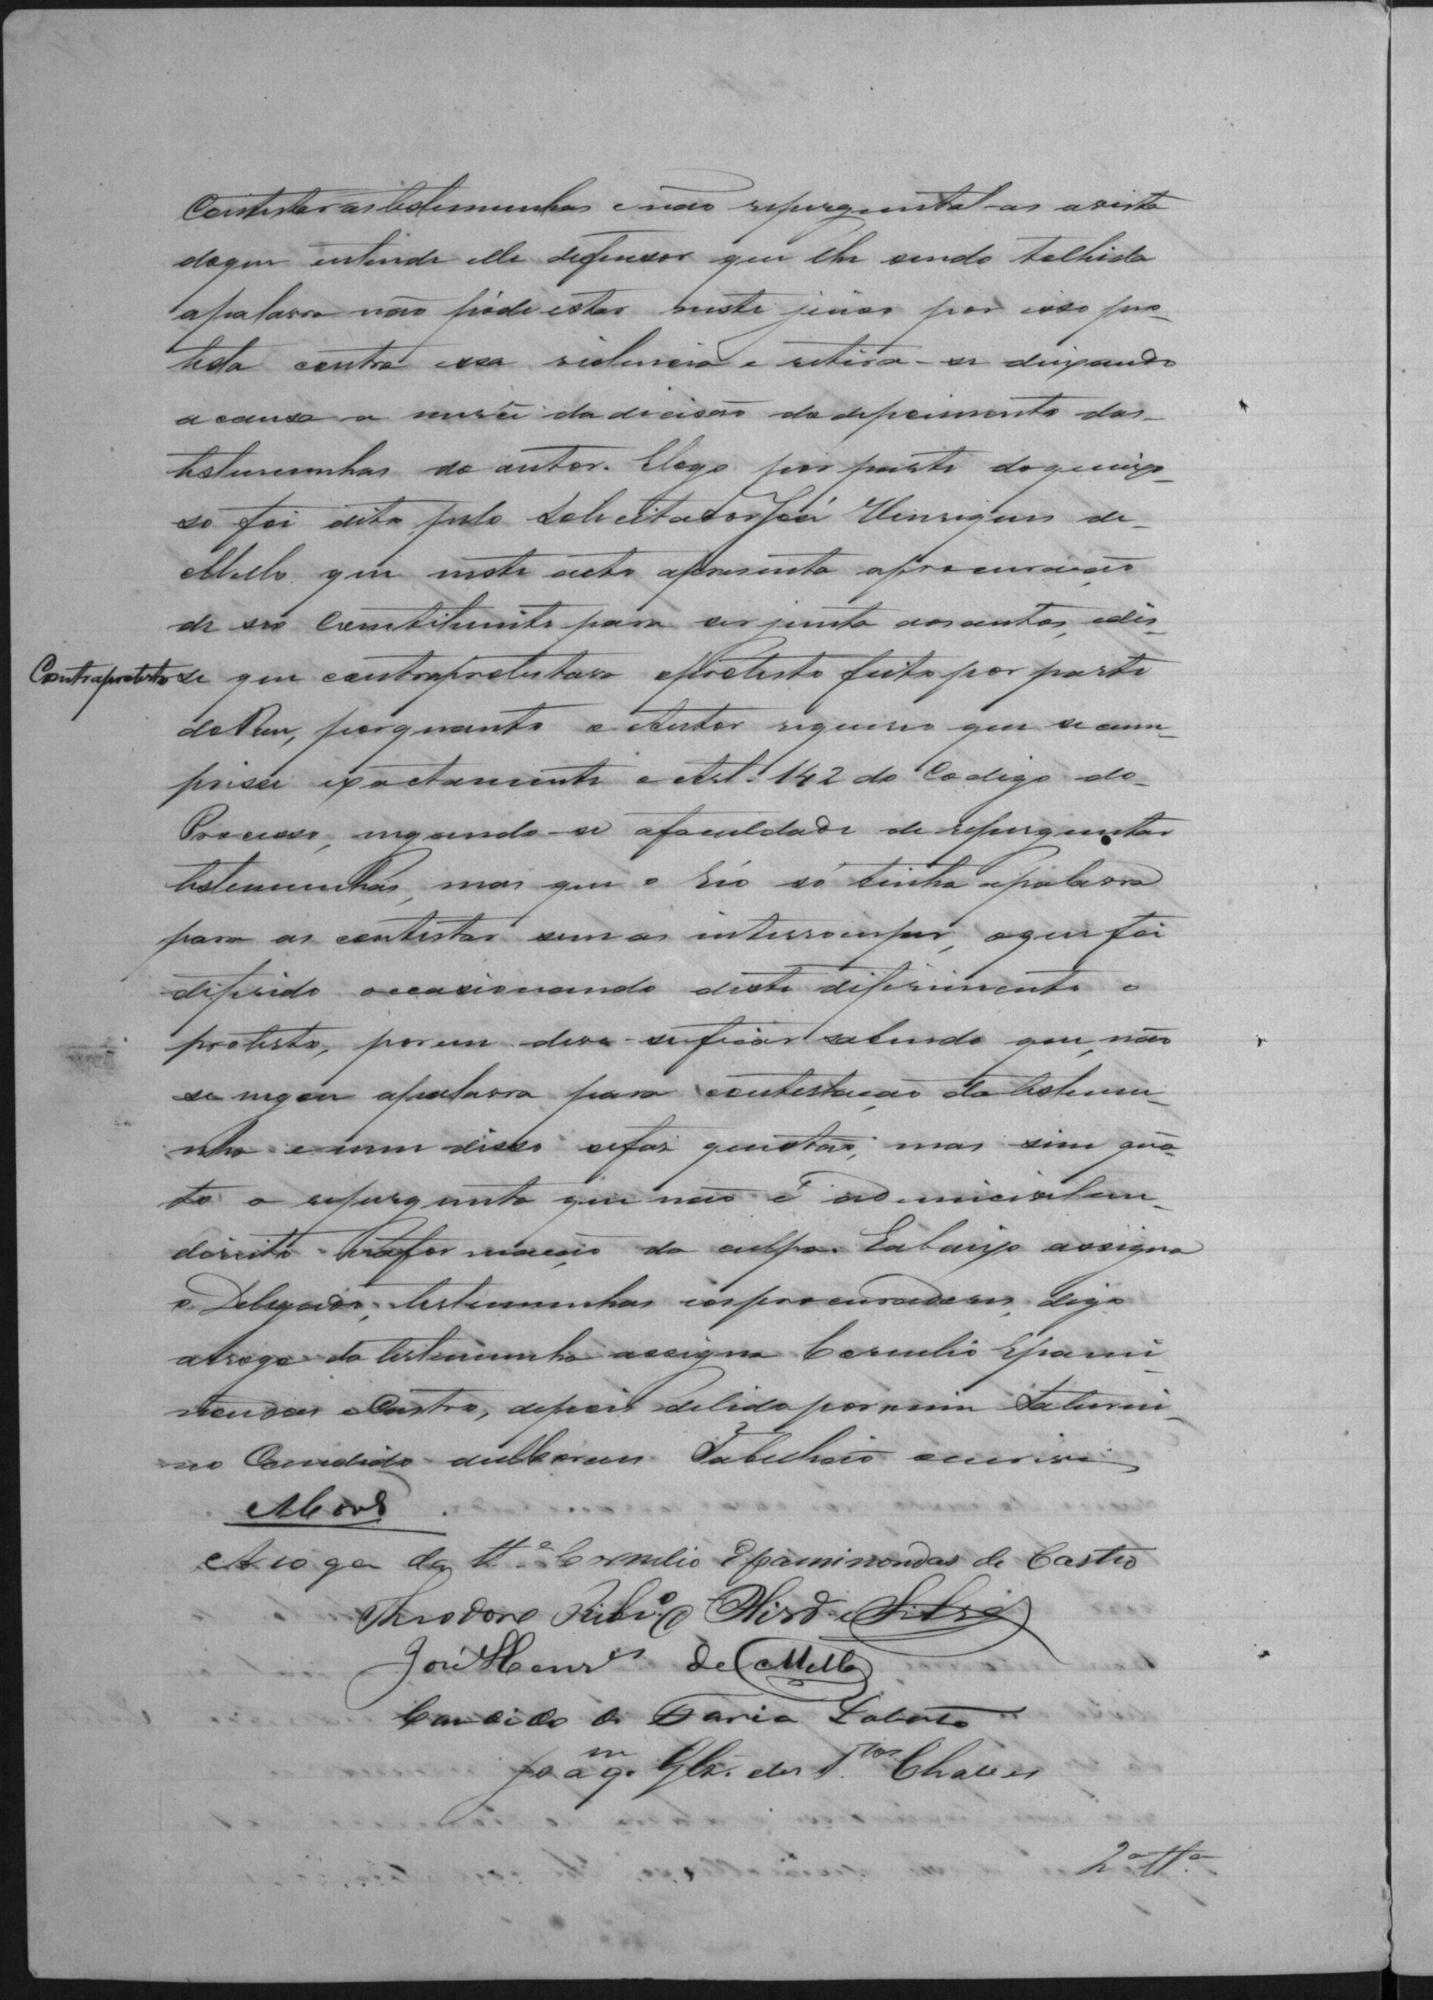 Contestar as testemunhas e não reperguntal-as avista
do que entende elle defensor que lhe sendo tolhida
apalavra não póde estar neste juiso por isso pro-
testa contra essa violencia e retira-se deixando
a causa a mercê da decisão do depoimento das
testemunhas do autor. E logo por parte do queixo-
so foi dito pelo Solicitador José Henriques de
Mello que neste acto apresenta aprocuração
de seo Constituinte para ser junta aos autos, e dis-
Contraprotesto
se que contraprotestava oprotesto feito por parte
do Reu, porquanto o Autor requereo que se cum-
prisse exactamente o Art. 142 do Codigo do
Processo, negando-se afaculdade de reperguntar
testemunhas, mas que o réo só tinha apalavra
para as contestar sem as interromper, o que foi
diferido occasionando deste diferimento o
protesto, porem deve-se ficar sabendo que, não
se negou apalavra para contestação da testemu-
nha e nem disso se faz questão, mas sim quã-
to a repergunta que não é admissivel em
direito na formação da culpa. E abaixo assigna
o Delegado, testemunhas e os procuradores, digo
arogo da testemunha assigna Cornelio Epami-
nondas de Castro, depois de lido por mim Saturni-
no Candido Tabellião escrivi
A rogo da tt.ª Cornelio Epaminondas de Castro
Theodoro Ribr.o
José Henr.es de Mello
Candido de Faria Lobato
Joaq.m Glz. dos S.tos Chaves
2ª tt.ª